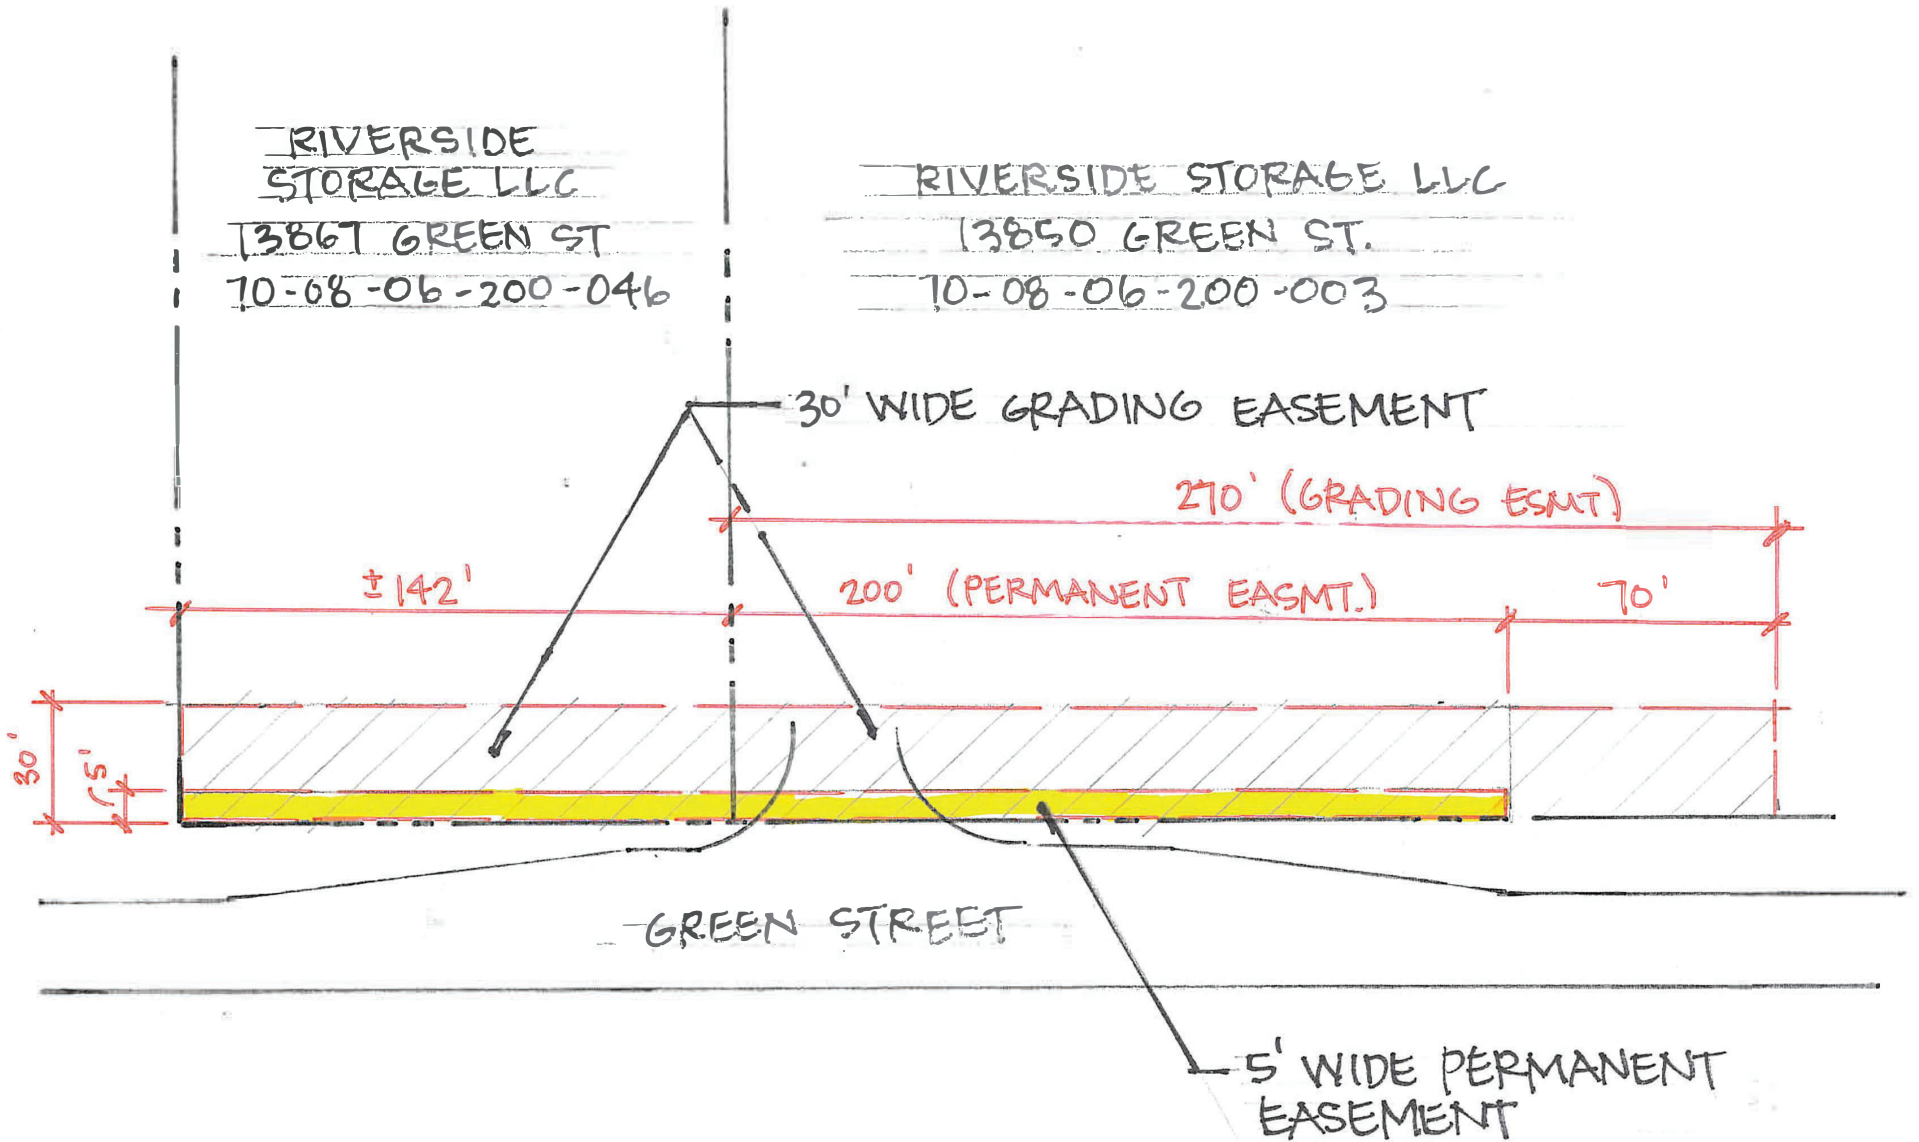 RIVERSIDE
STORAGE LLC
13867 GREEN ST
70-08-06-200-046
RIVERSIDE STORAGE LLC
13850 GREEN ST.
70-08-06-200-003
30' WIDE GRADING EASEMENT
270' (GRADING ESMT)
±142'
200' (PERMANENT EASMT.)
70'
30'
5'
GREEN STREET
5' WIDE PERMANENT
EASEMENT